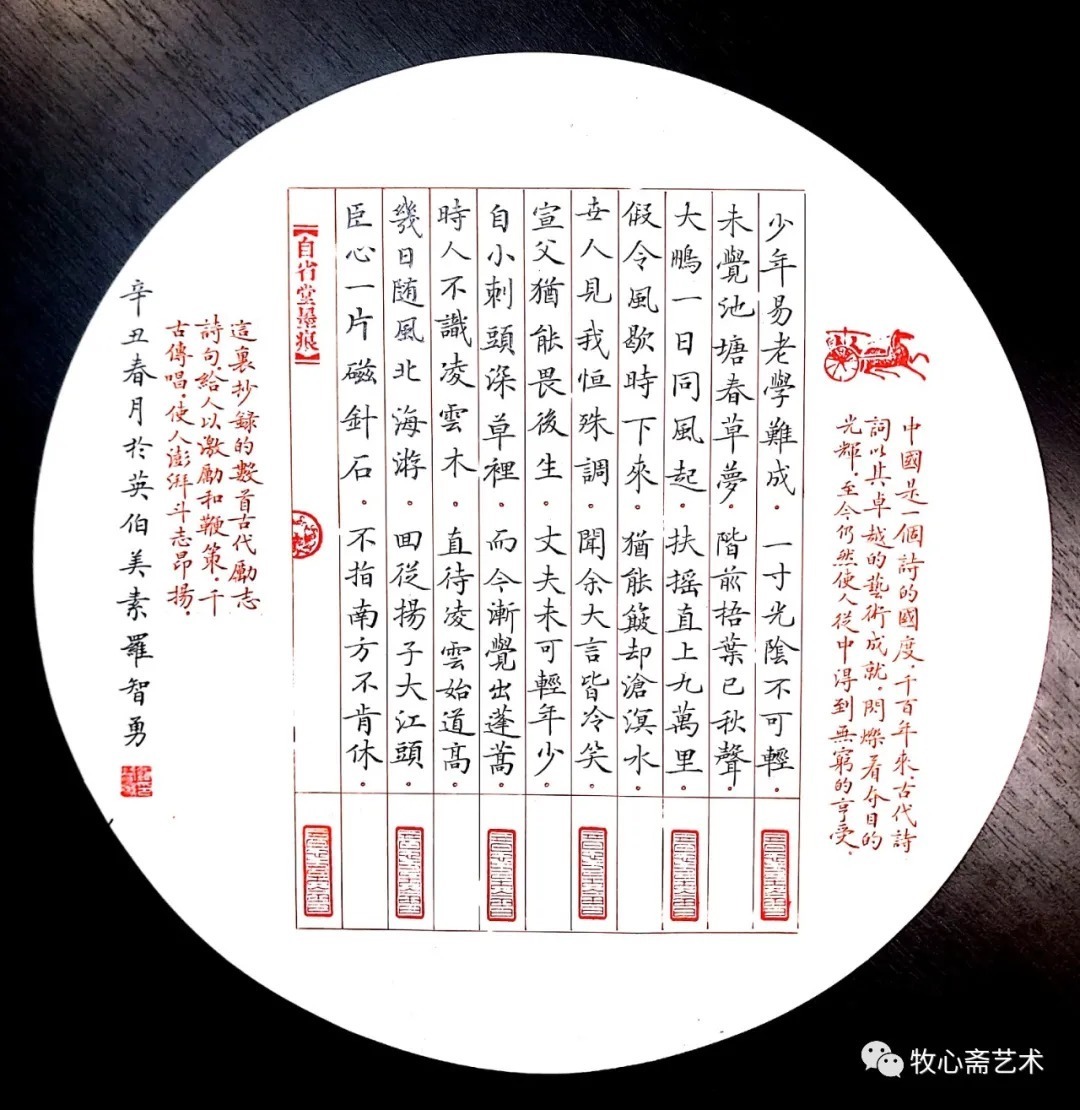 中國是一個詩的國度，千百年來，古代詩
詞以其卓越的藝術成就，閃爍着夺目的
光輝，至今仍然使人從中得到無窮的享受，
少年易老學難成。一寸光陰不可輕。
未覺池塘春草夢。階前梧葉已秋聲。
大鵬一日同風起。扶摇直上九萬里。
假令風歇時下來。猶能簸却滄溟水。
世人見我恒殊調。聞余大言皆冷笑。
宣父猶能畏後生。丈夫未可輕年少。
自小刺頭深草裡。而今漸覺出蓬蒿。
時人不識凌雲木。直待凌雲始道高。
幾日随風北海游。回從揚子大江頭。
臣心一片磁針石。不指南方不肯休。
【自省堂墨痕】
這裏抄録的數首古代勵志
詩句，給人以激勵和鞭策，千
古傳唱，使人澎湃斗志昂揚。
辛丑春月於英伯美素羅智勇
牧心斋艺术